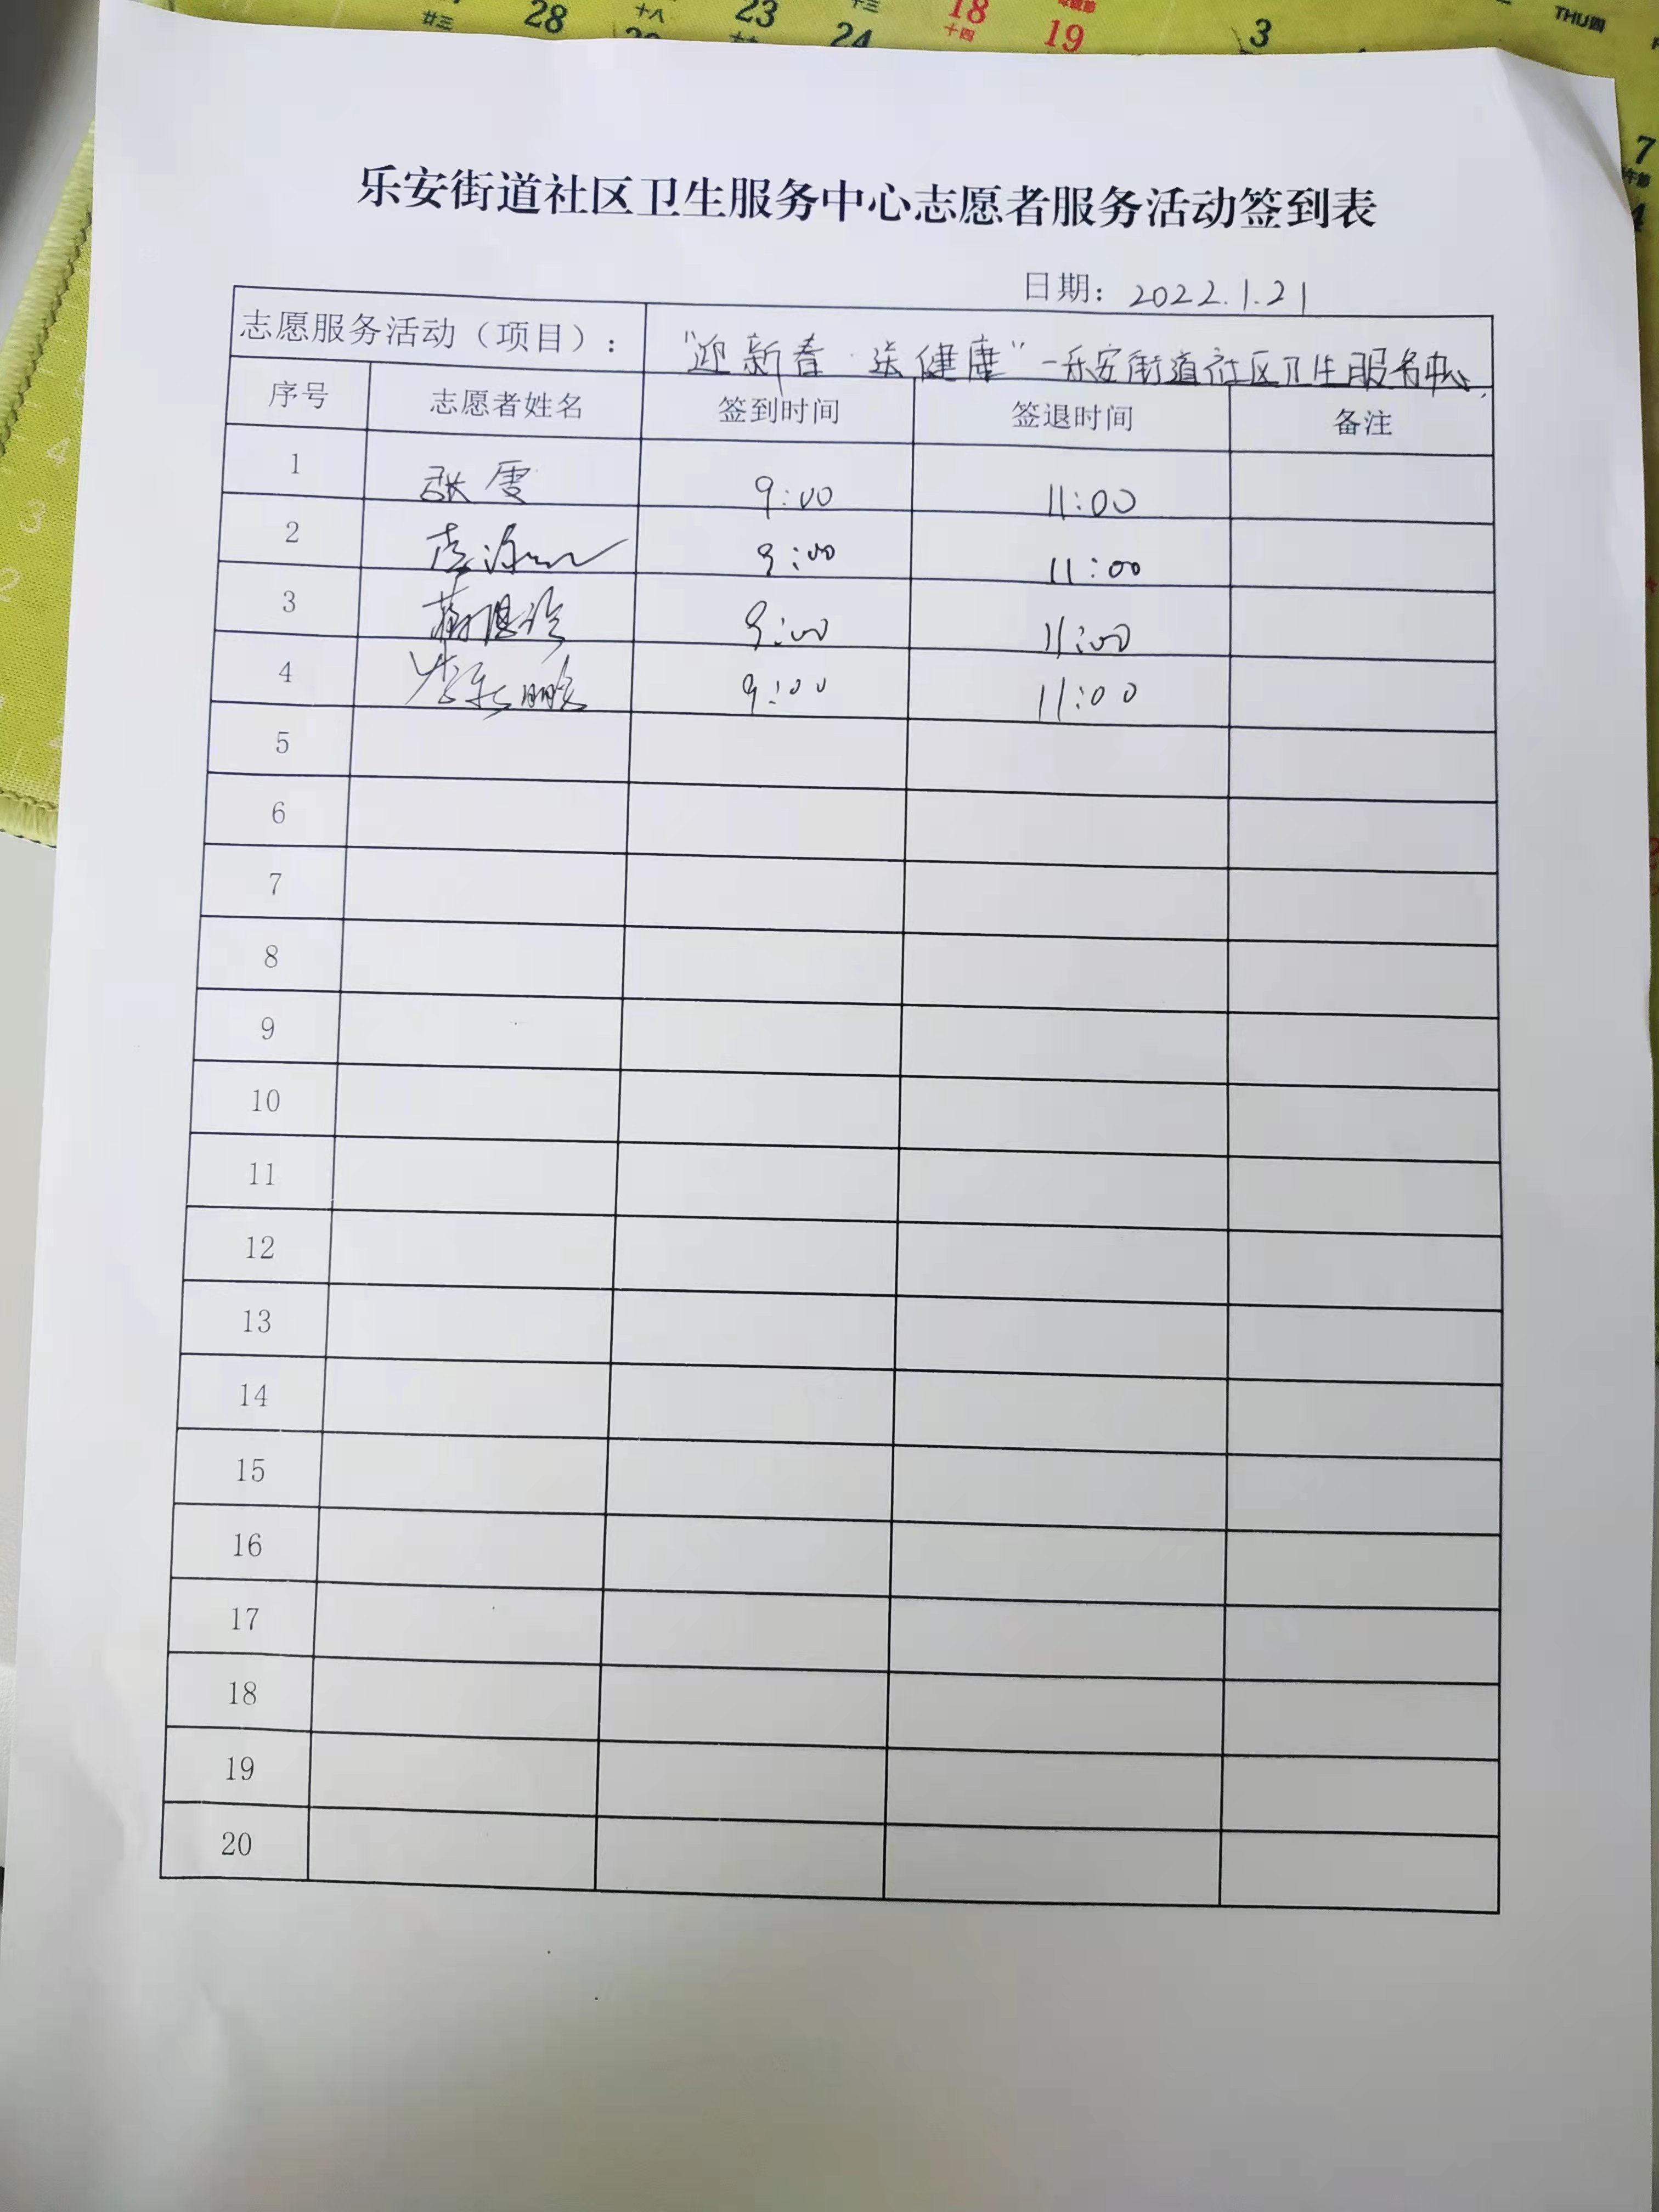 28 十八 23 十三 18 年饭节
廿三 24 十四 19 3 THU四
7
乐安街道社区卫生服务中心志愿者服务活动签到表
日期：2022.1.21
志愿服务活动（项目）： "迎新春 送健康"－乐安街道社区卫生服务中心
序号 志愿者姓名 签到时间 签退时间 备注
1 张 9:00 11:00
2 9:00 11:00
3 9:00 11:00
4 9:00 11:00
5
6
7
8
9
10
11
12
13
14
15
16
17
18
19
20